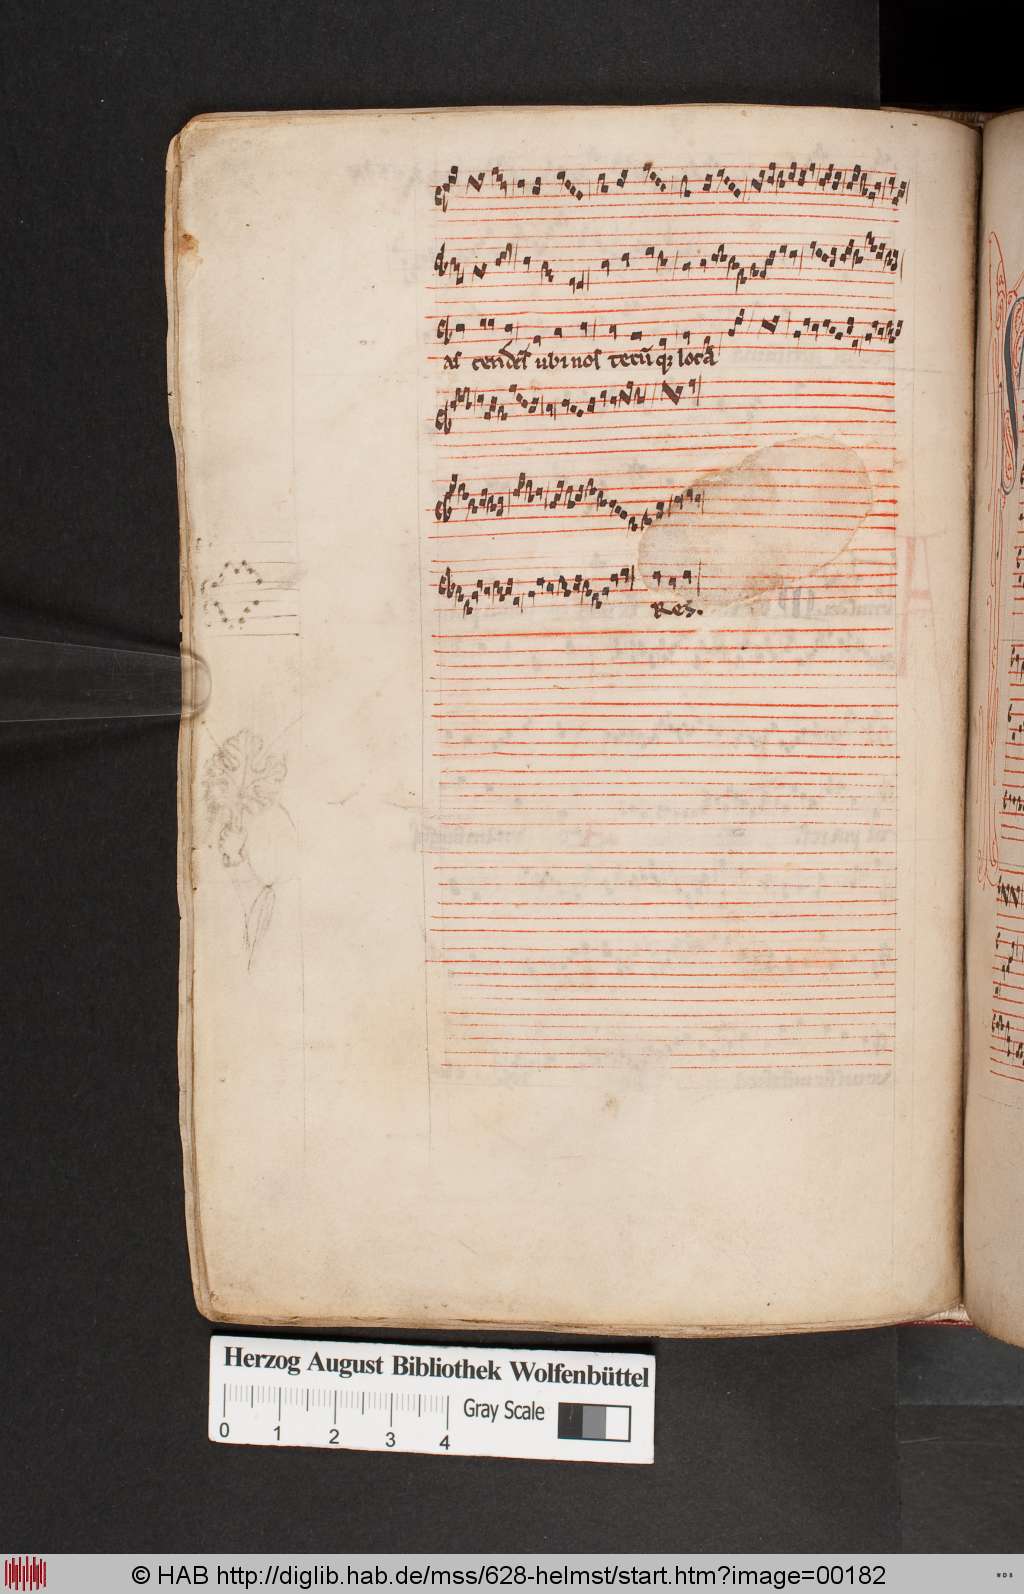 as cendens ubi nos tecū qꝫ locā
Res.
Herzog August Bibliothek Wolfenbüttel
Gray Scale
0 1 2 3 4
© HAB http://diglib.hab.de/mss/628-helmst/start.htm?image=00182